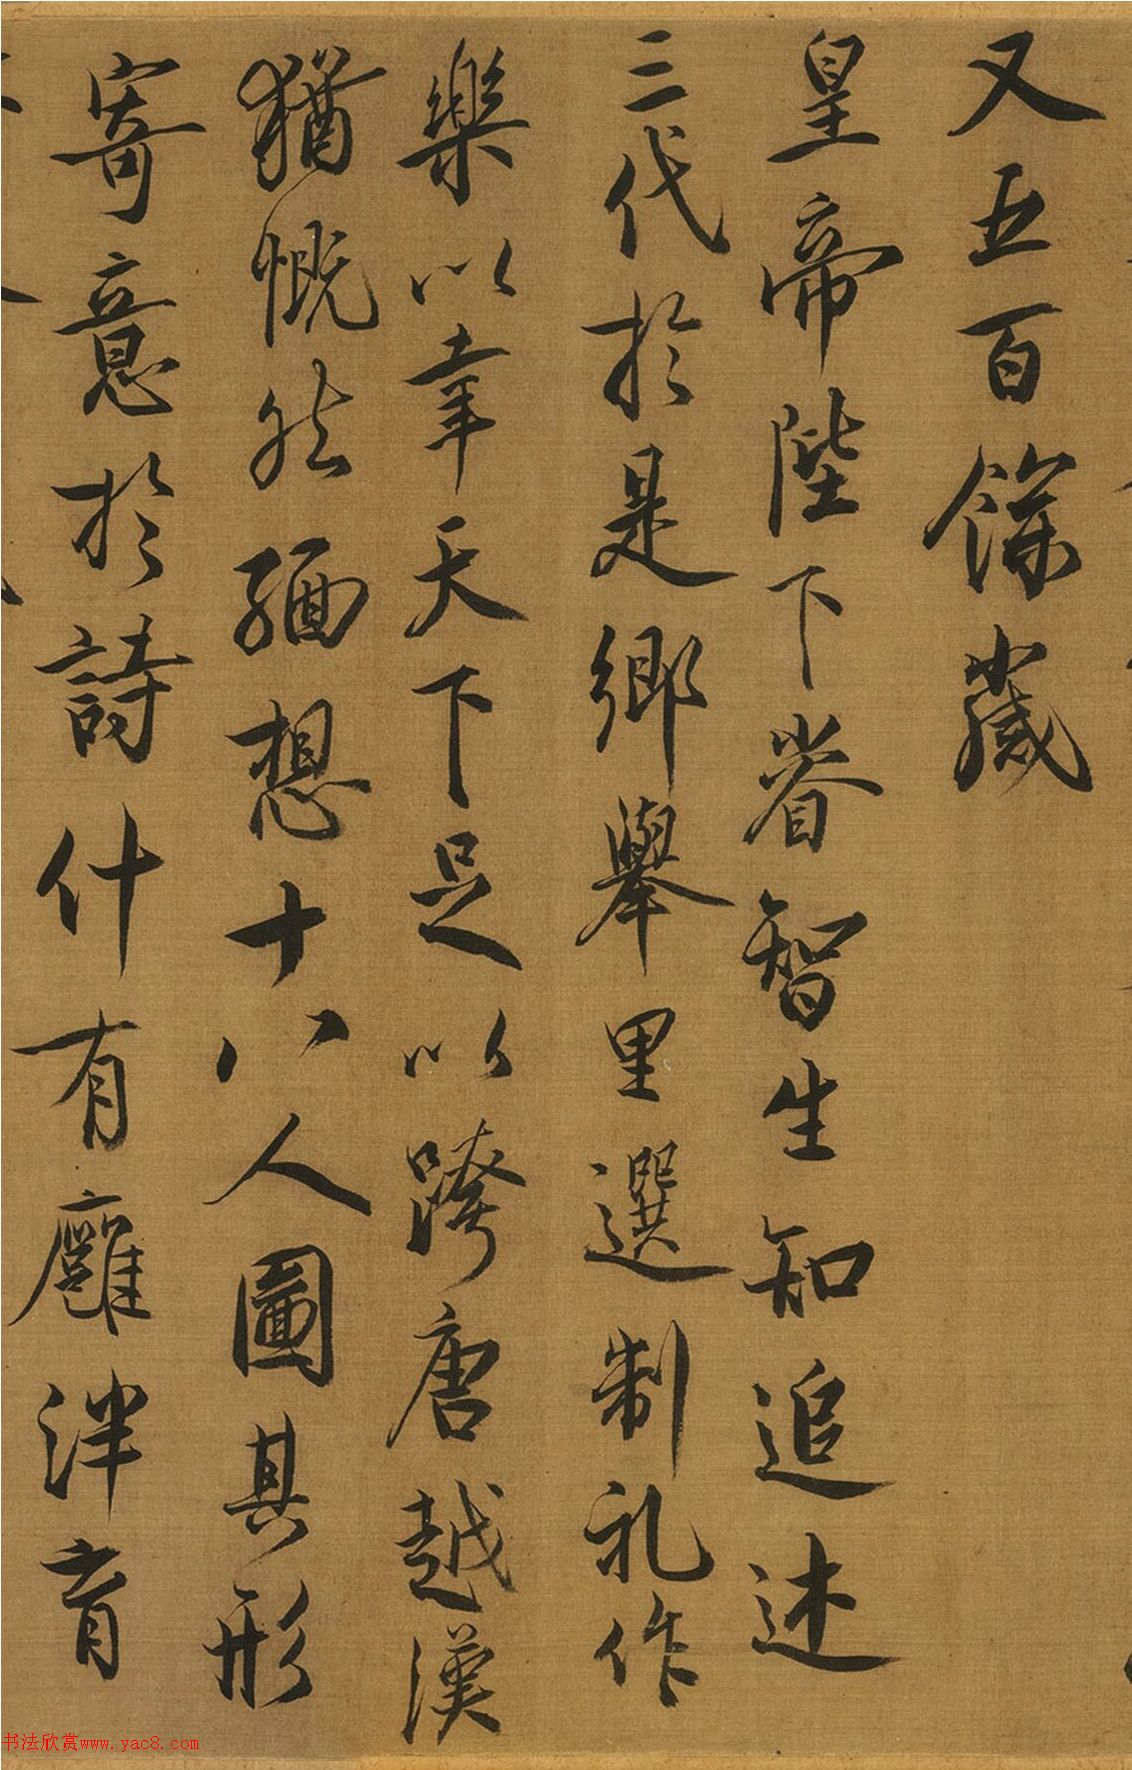 又五百餘歲
皇帝陛下睿智生知追述
三代於是鄉舉里選制礼作
樂以幸天下足以跨唐越漢
猶慨然緬想十八人圖其形
寄意於詩什有廱泮育
书法欣赏www.yac8.com